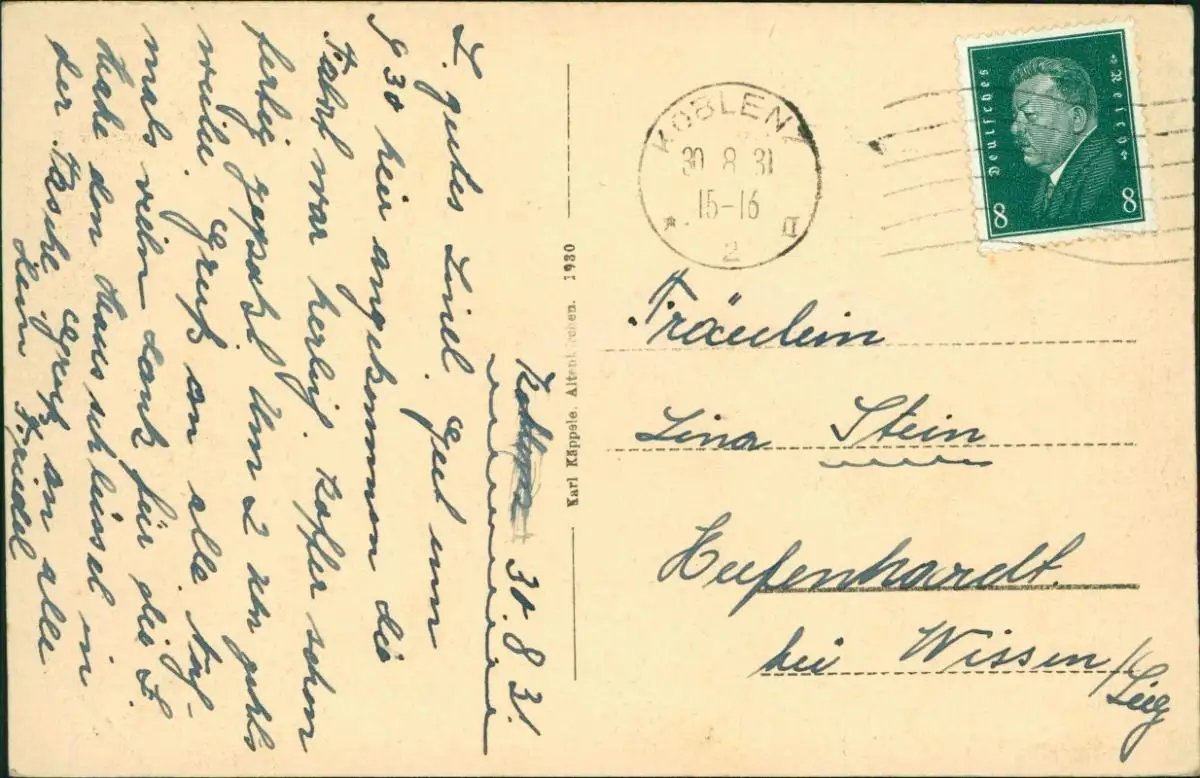 30.8.31.
L. gutes Liesel. Gut um
9 30 hier angekommen die
Fahrt war herrlig. Koffer schon
fertig gepakt. Um 2 Uhr gehts
weiter. Gruß an alle
mals vieln Dank für die L.
habe den Hausschlüssel in
der Tasche Gruß an alle
Dein Friedel
Karl Käppele, Altenkirchen. 1930
KOBLENZ
30 8 31
15-16
* II
2
Deutsches Reich
8 8
Fräulein
Lina Stein
Hufenhardt.
bei Wissen
/Sieg